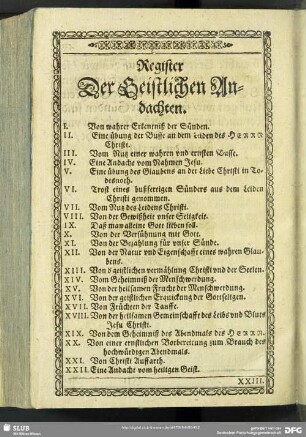 Register
Der Geistlichen An-
dachten.
I. Von wahrer Erkentniß der Sünden.
II. Eine übung der Busse an dem Leiden des HERRN
Christi.
III. Vom Nutz einer wahren vnd ernsten Busse.
IV. Eine Andacht vom Nahmen Jesu.
V. Eine übung des Glaubens an der Liebe Christi in To-
desnoth.
VI. Trost eines bußfertigen Sünders aus dem Leiden
Christi genommen.
VII. Vom Nutz des Leidens Christi.
VIII. Von der Gewißheit vnser Seligkeit.
IX. Daß man alleine Gott lieben soll.
X. Von der Versühnung mit Gott.
XI. Von der Bezahlung für vnser Sünde.
XII. Von der Natur vnd Eigenschafft eines wahren Glau-
bens.
XIII. Von der geistlichen vermählung Christi vnd der Seelen.
XIV. Vom Geheimniß der Menschwerdung.
XV. Von der heilsamen Frucht der Menschwerdung.
XVI. Von der geistlichen Erquickung der Gottseligen.
XVII. Von Früchten der Tauffe.
XVIII. Von der heilsamen Gemeinschafft des Leibs vnd Bluts
Jesu Christi.
XIX. Von dem Geheimniß des Abendmals des HERRN.
XX. Von einer ernstlichen Vorbereitung zum Brauch des
hochwürdigen Abendmals.
XXI. Von Christi Auffarth.
XXII. Eine Andacht vom heiligen Geist.
XXIII.
SLUB
DFG